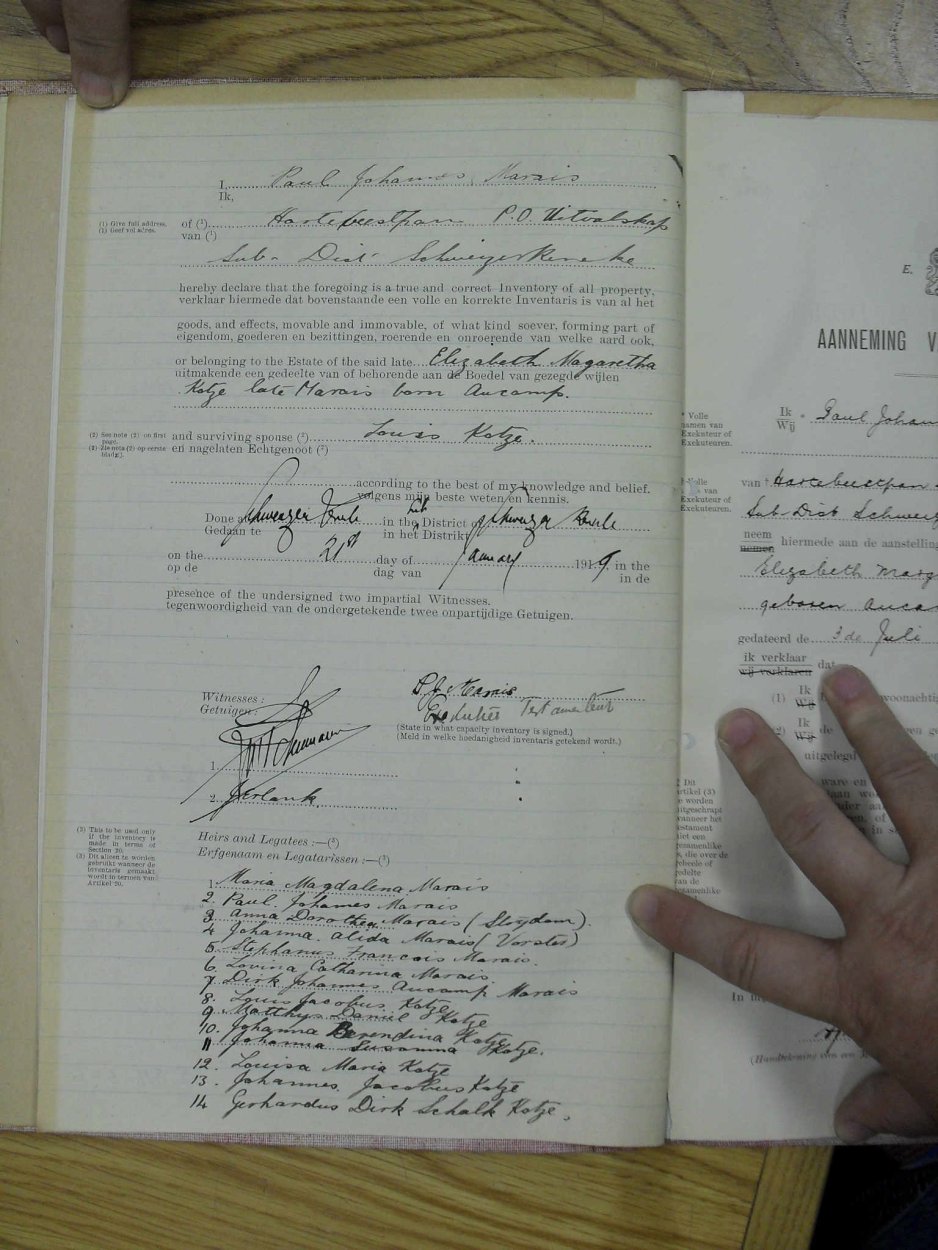 I, Paul Johannes Marais
Ik,
(1) Give full address.
(1) Geef vol adres.
of (1) Hartebeestpan P.O. Uitvalskop
van (1)
Sub- Dist- Schweizer Reneke
hereby declare that the foregoing is a true and correct Inventory of all property,
verklaar hiermede dat bovenstaande een volle en korrekte Inventaris is van al het
goods, and effects, movable and immovable, of what kind soever, forming part of
eigendom, goederen en bezittingen, roerende en onroerende van welke aard ook,
or belonging to the Estate of the said late Elizabeth Magaretha
uitmakende een gedeelte van of behorende aan de Boedel van gezegde wijlen
Kotze late Marais born Aucamp.
(2) See note (2) on first page.
(2) Zie nota (2) op eerste bladzij.
and surviving spouse (2) Louis Kotze.
en nagelaten Echtgenoot (2)
according to the best of my knowledge and belief.
volgens mijn beste weten en kennis.
Done at Schweizer Reneke in the District of Schweizer Reneke
Gedaan te in het Distrikt
on the 21st day of January 1919 in the
op de dag van in de
presence of the undersigned two impartial Witnesses.
tegenwoordigheid van de ondergetekende twee onpartijdige Getuigen.
Witnesses:
Getuigen:
P.J. Marais
Executeur Testamentair
(State in what capacity inventory is signed.)
(Meld in welke hoedanigheid inventaris getekend wordt.)
1.
2.
(3) This to be used only
if the inventory is
made in terms of
Section 20.
(3) Dit alleen te worden
gebruikt wanneer de
inventaris gemaakt
wordt in termen van
Artikel 20.
Heirs and Legatees:—(3)
Erfgenaam en Legatarissen:—(3)
1. Maria Magdalena Marais
2. Paul Johannes Marais
3 Anna Dorothea Marais (Strydom).
4 Johanna Alida Marais (Vorster)
5 Stephanus Francois Marais.
6. Lovina Catharina Marais
7 Dirk Johannes Aucamp Marais
8. Louis Jacobus Kotze
9 Matthys Daniel Kotze
10. Johanna Berendina Kotze
11 Johanna Susanna Kotze.
12. Louisa Maria Kotze
13. Johannes Jacobus Kotze
14 Gerhardus Dirk Schalk Kotze.
E.
AANNEMING V
* Volle
namen van
Exekuteur of
Exekuteuren.
Ik Paul Johan
Wij
van † Hartebeestpan
Sub Dist Schweiz
neem hiermede aan de aanstelling
nemen
Elizabeth Marg
geboren Auca
gedateerd de 3de Juli
ik verklaar dat
wij verklaren
(1) Ik woonachtig
Wij
Ik
Wij
uitgelegd